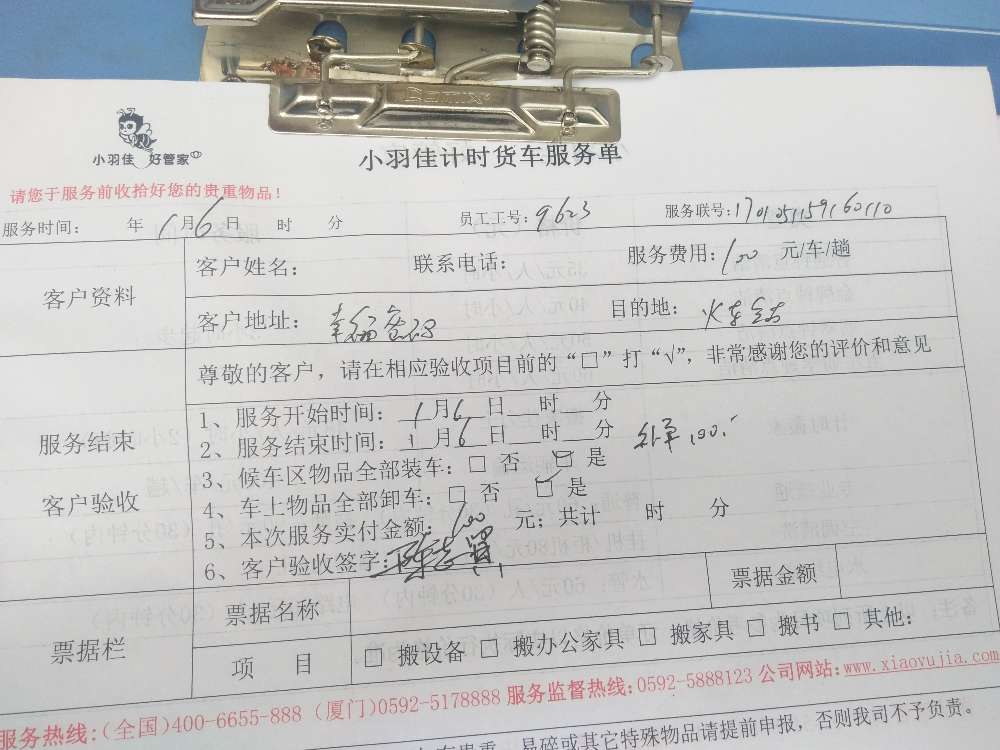 小羽佳 好管家
小羽佳计时货车服务单
请您于服务前收拾好您的贵重物品！
服务时间： 年 1月6日 时 分 员工工号：9623 服务联号：1701051159160110
客户资料
客户姓名： 联系电话： 服务费用：100 元/车/趟
客户地址：幸福 目的地：火车站
尊敬的客户，请在相应验收项目前的“□”打“√”，非常感谢您的评价和意见
服务结束
客户验收
1、服务开始时间：1月6日 时 分
2、服务结束时间：1月6日 时 分 100
3、候车区物品全部装车：□ 否 ☑ 是
4、车上物品全部卸车：□ 否 ☑ 是
5、本次服务实付金额：100 元；共计 时 分
6、客户验收签字：陈志翼
票据栏
票据名称 票据金额
项 目 □ 搬设备 □ 搬办公家具 □ 搬家具 □ 搬书 □ 其他：
服务热线：(全国)400-6655-888 (厦门)0592-5178888 服务监督热线：0592-5888123 公司网站：www.xiaoyujia.com
贵重、易碎或其它特殊物品请提前申报，否则我司不予负责。